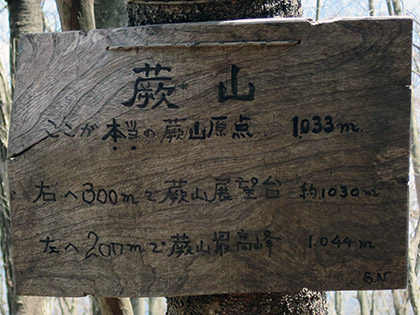 蕨山
ここが本当の蕨山原点 1033m.
右へ300mで蕨山展望台 約1030m
左へ200mで蕨山最高峰 1.044m
S.N